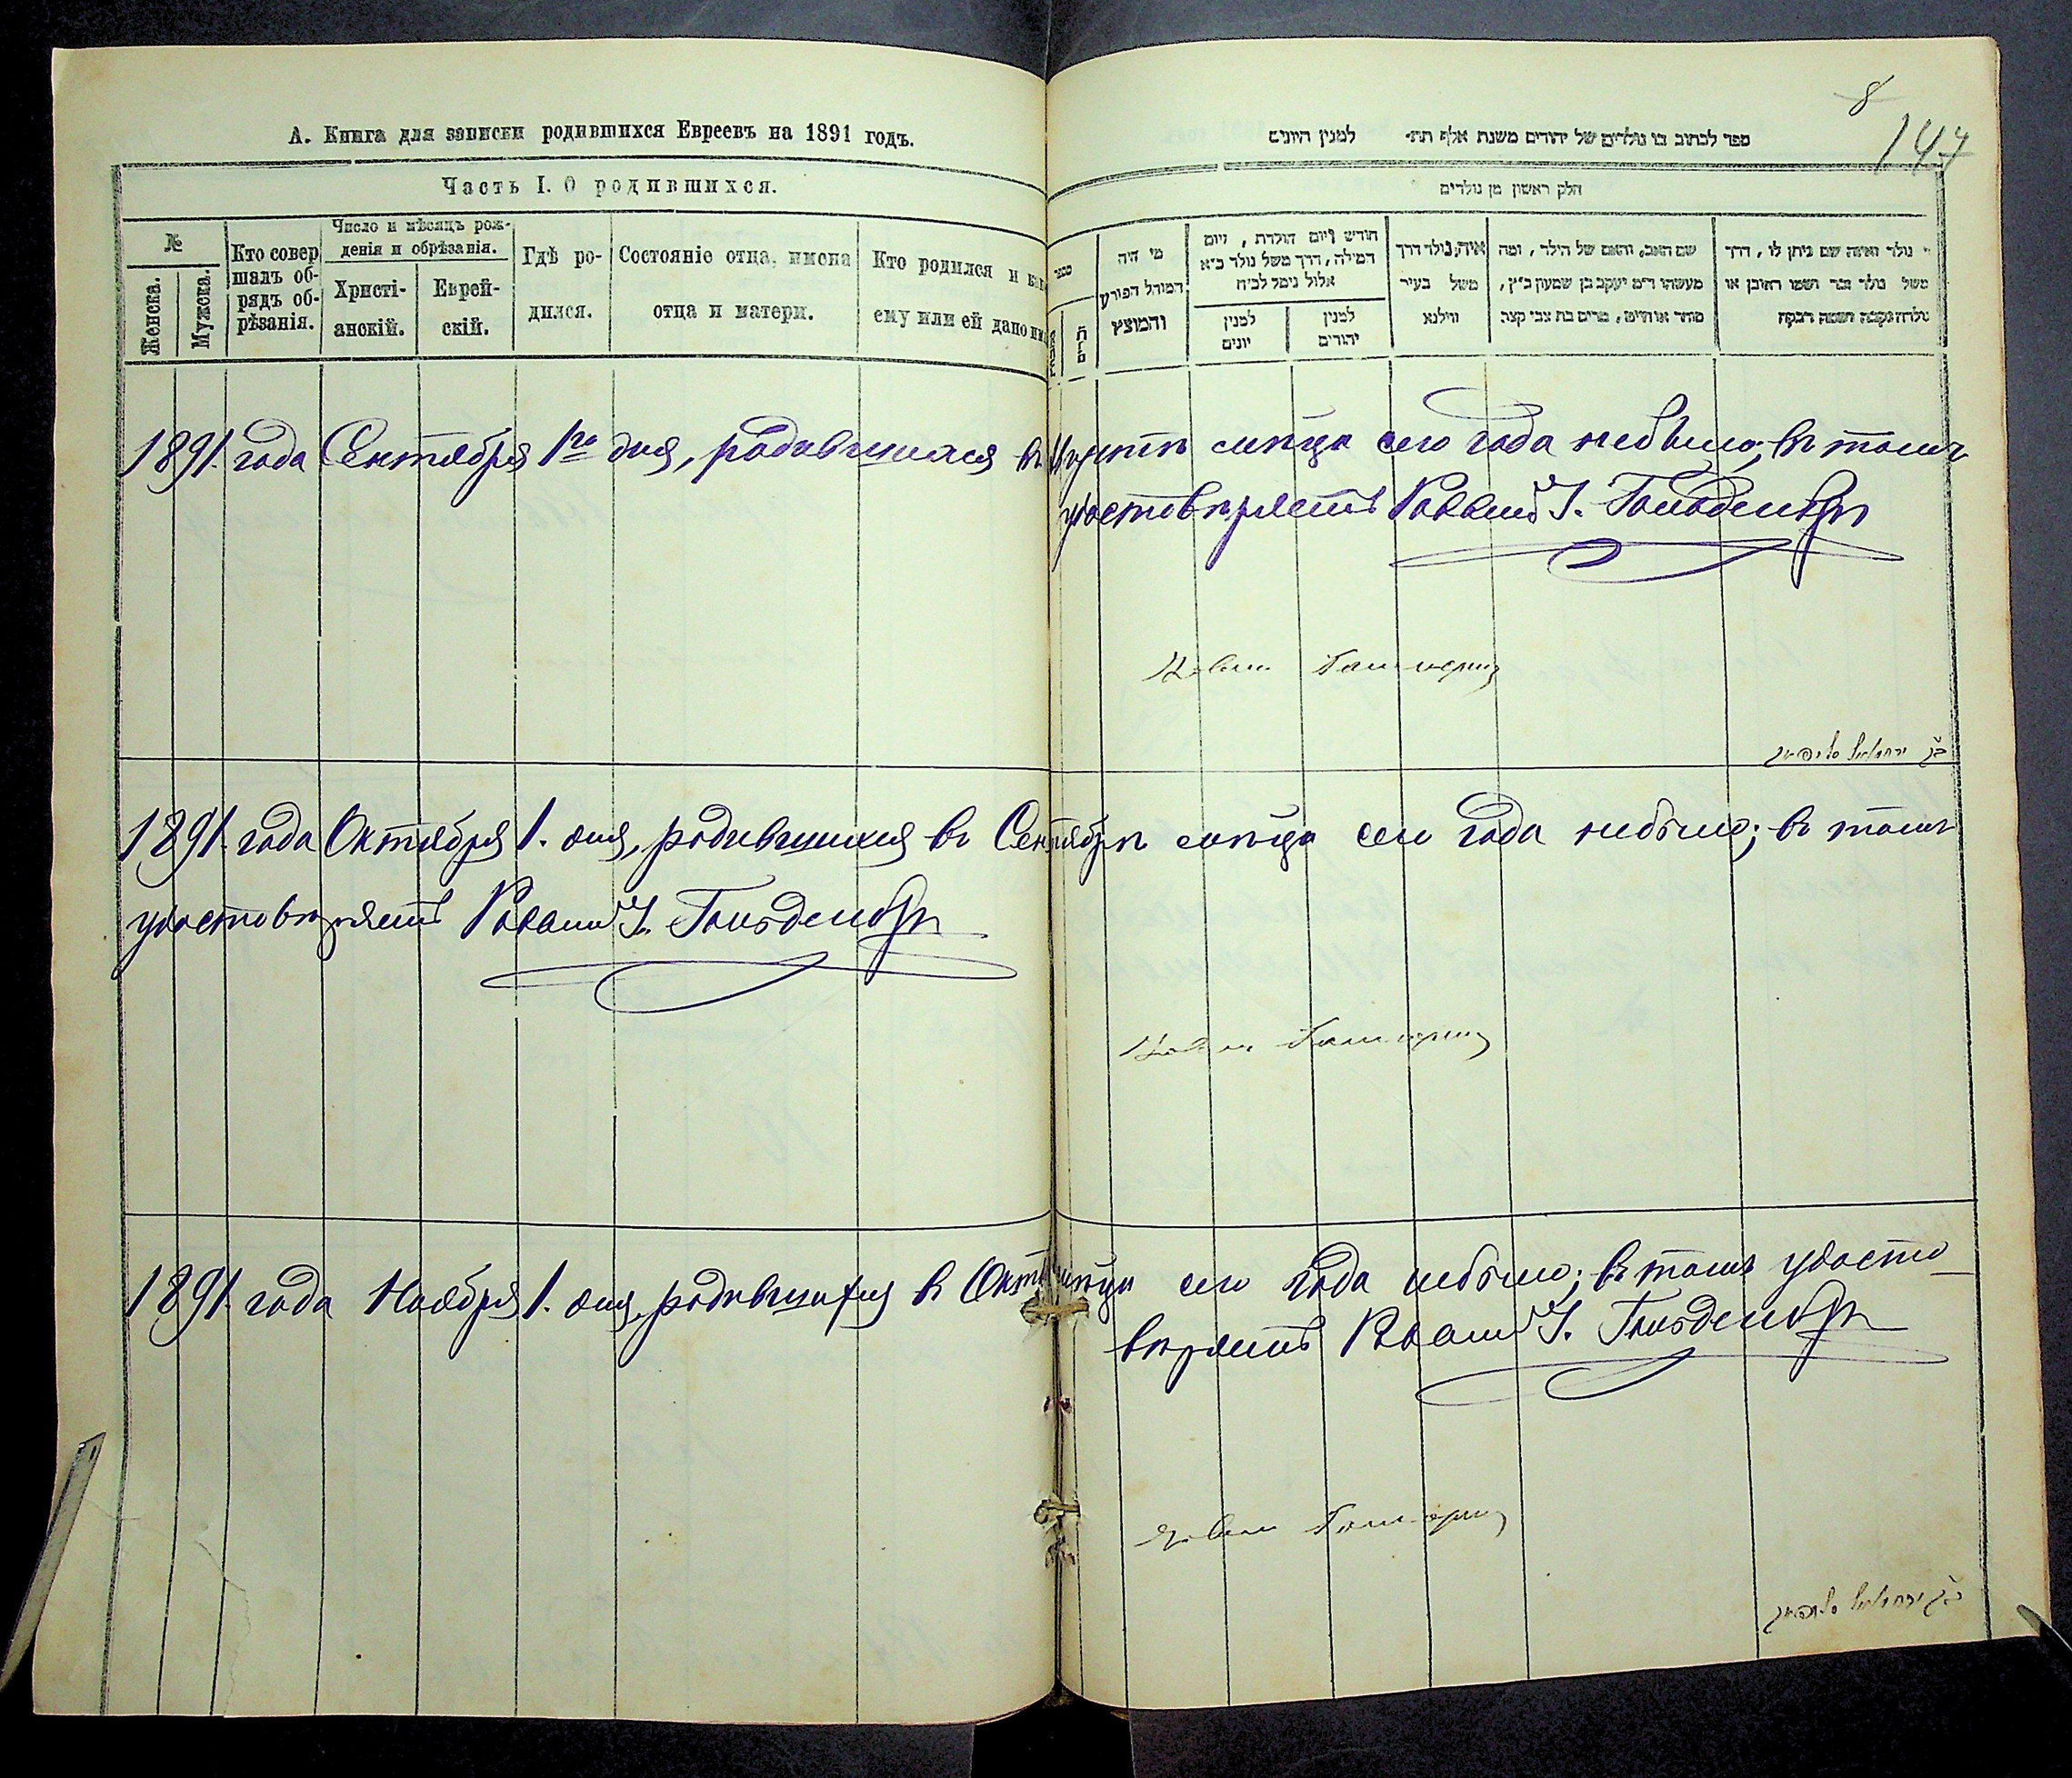 А. Книга для записки родившихся Евреевъ на 1891 годъ.
Часть I. О родившихся.
№
Женска.
Мужска.
Кто совер
шалъ об-
рядъ об-
рѣзанія.
Число и мѣсяцъ рож-
денія и обрѣзанія.
Христі-
анскій.
Еврей-
скій.
Гдѣ ро-
дился.
Состояніе отца, имена
отца и матери.
Кто родился и
ему или ей дано
8
147
ספר לכתוב בו נולדים של יהודים משנת אלף תת׳ למנין היונים
חלק ראשון מן נולדים
מי היה
המוהל הפורע
והמוצץ
חודש ויום הולדת, ויום
המילה, דרך משל נולד כ״א
אלול נימל לכ״ח
למנין
יונים
למנין
יהודים
איה נולד דרך
משל בעיר
ווילנא
שם האב, והאם של הילד, ומה
מעשהו ד״מ יעקב בן שמעון כ״ץ,
סוחר או חייט, מרים בת צבי קצב
נולד ואיזה שם ניתן לו, דרך
משל נולד זכר ושמו ראובן או
נולדה נקבה ושמה רבקה
1891. года Сентября 1го дня, родившихся въ Августѣ мѣцѣ сего года небыло; въ томъ
удостовѣряетъ Раввинъ І. Гольденбергъ
1891. года Октября 1. дня, родившихся въ Сентябрѣ мѣцѣ сего года небыло; въ томъ
удостовѣряетъ Раввинъ І. Гольденбергъ
1891. года Ноября 1. дня, родившихся въ Окт мѣцѣ сего года небыло; въ томъ удосто-
вѣряетъ Раввинъ І. Гольденбергъ